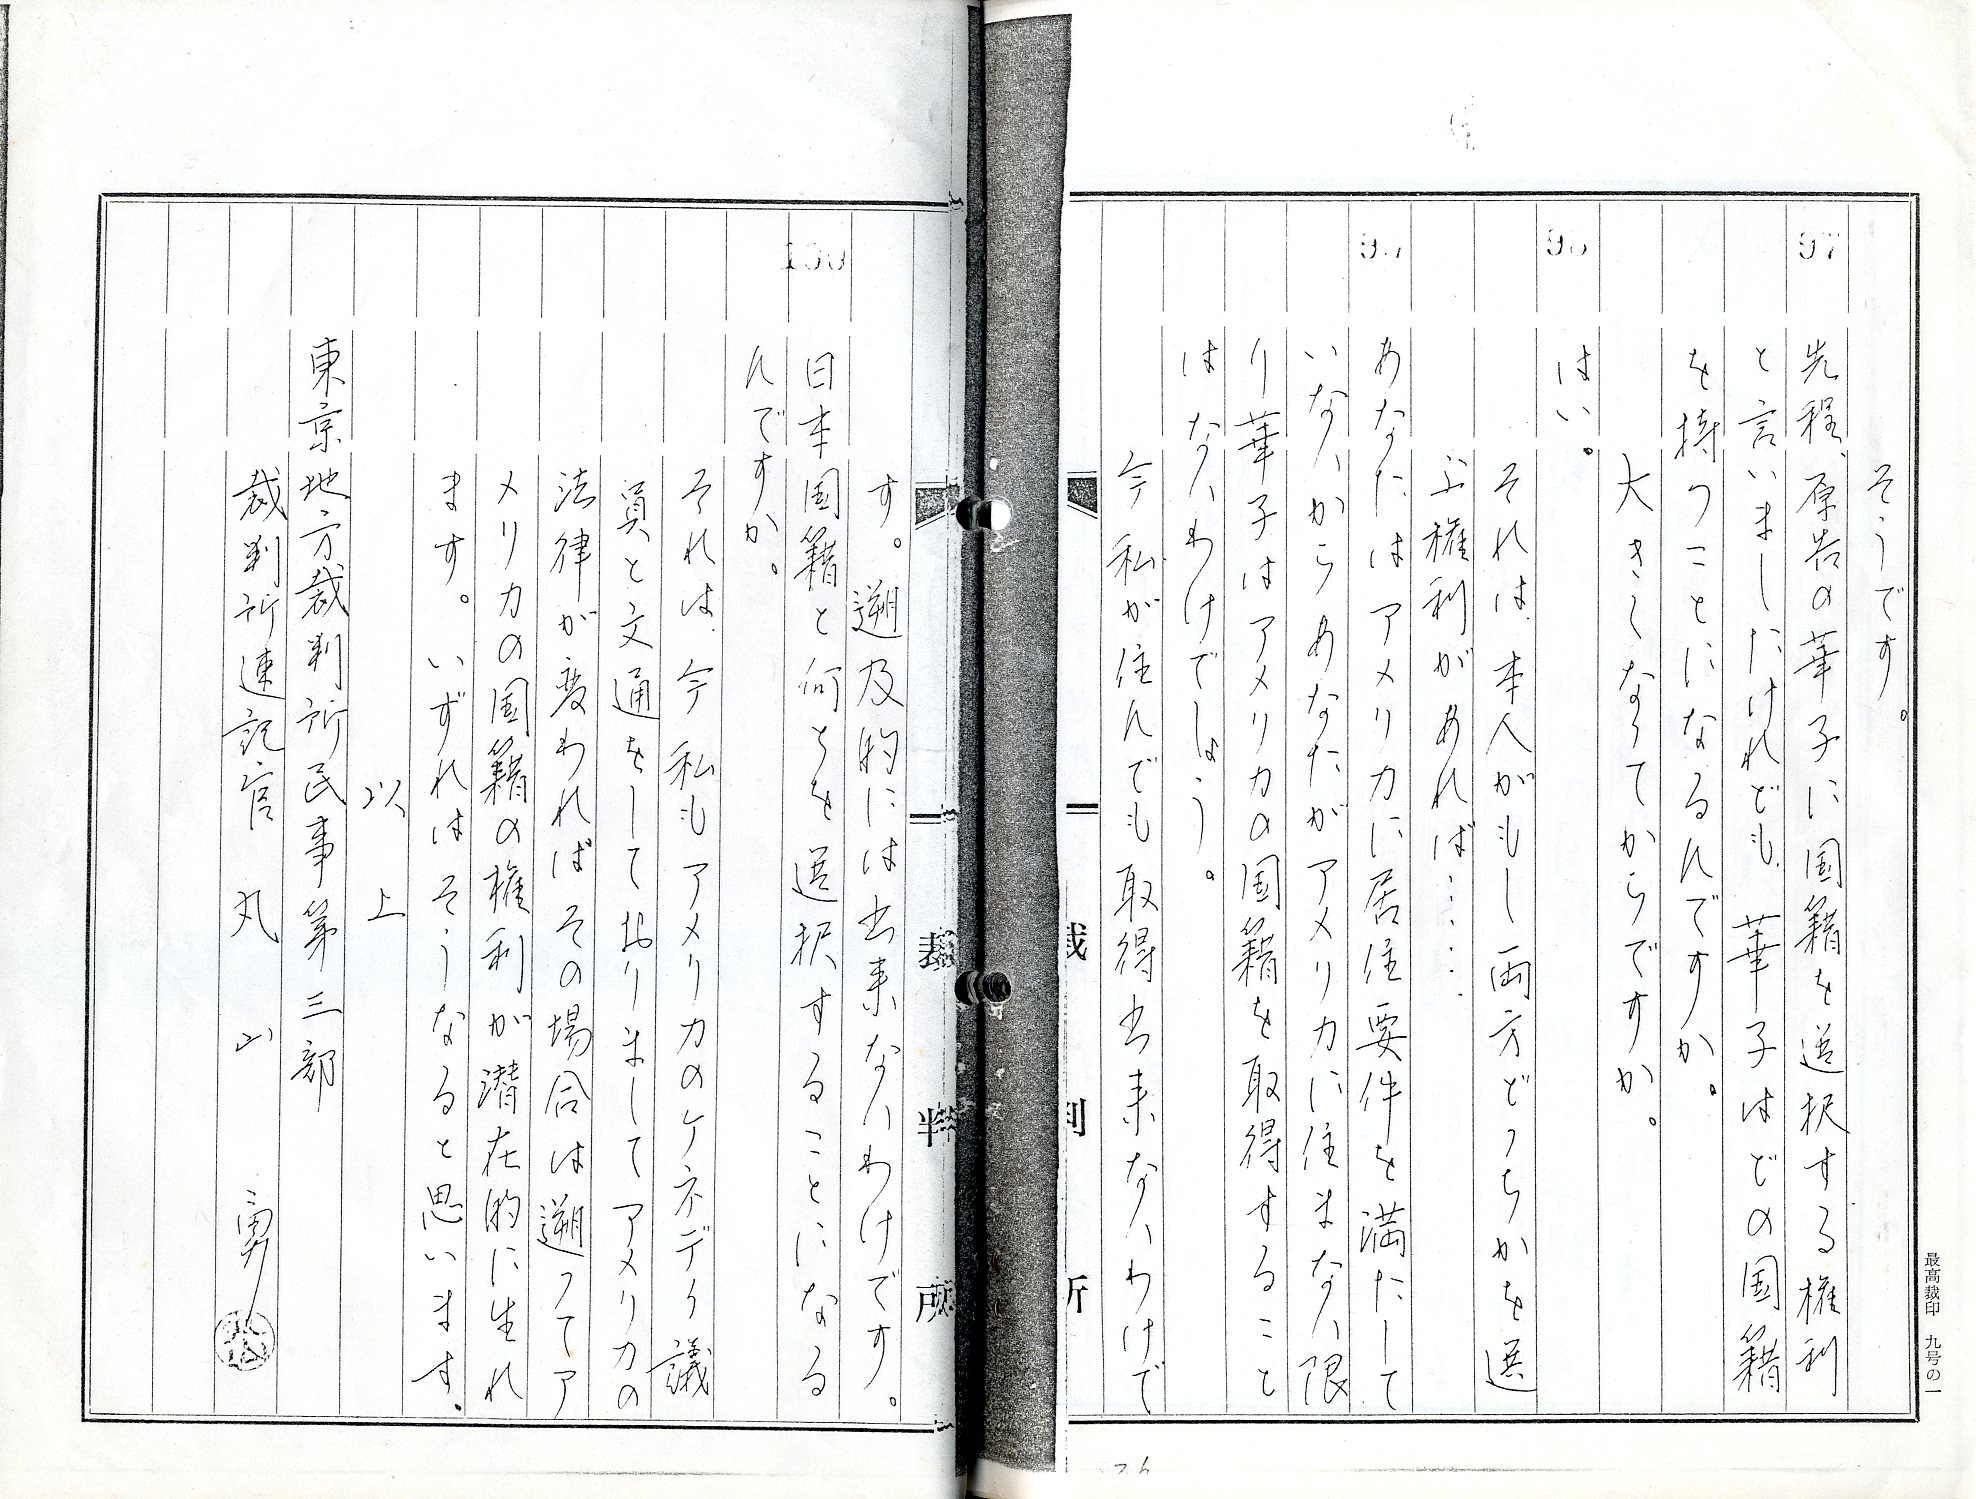 そうです。
97
先程、原告の華子に国籍を選択する権利
と言いましたけれども、華子はどの国籍
を持つことになるんですか。
大きくなってからですか。
98
はい。
それは、本人がもし両方どっちかを選
ぶ権利があれば……
あなたはアメリカに居住要件を満たして
いない、からあなたがアメリカに住まない限
り華子はアメリカの国籍を取得すること
はないわけでしょう。
今私が住んでも取得出来ないわけで
裁判所
す。遡及的には出来ないわけです。
100
日本国籍と何とを選択することになる
んですか。
それは、今私もアメリカのケネディ議
員と文通をしておりましてアメリカの
法律が変わればその場合は遡ってア
メリカの国籍の権利が潜在的に生れ
ます。いずれはそうなると思います。
以上
東京地方裁判所民事第三部
裁判所速記官 丸山 勇
最高裁印 九号の一